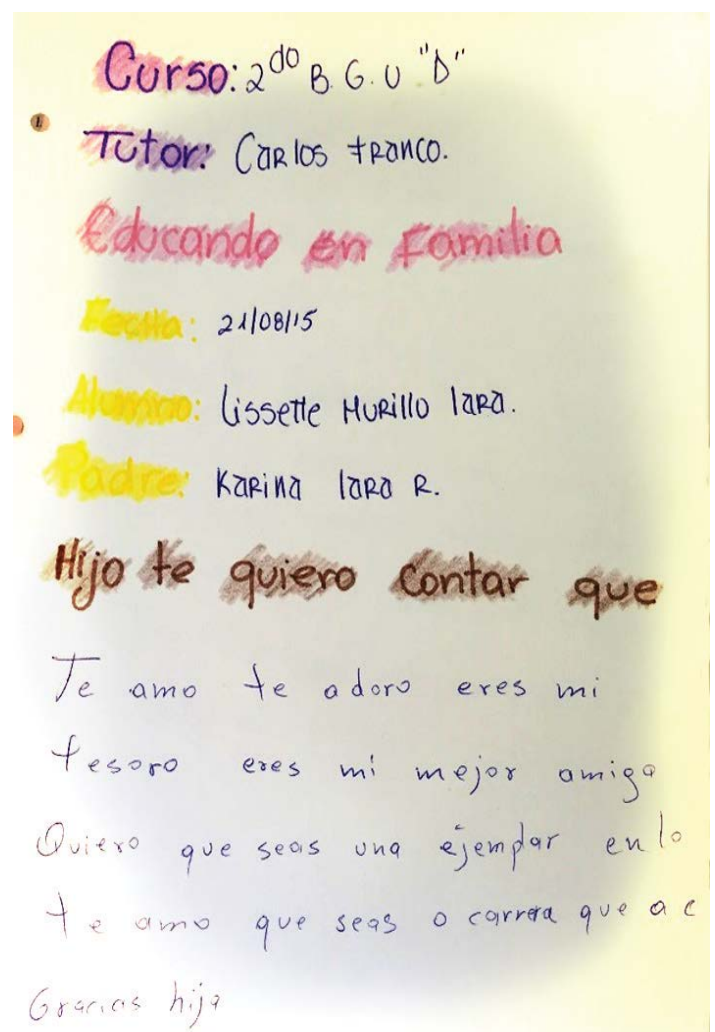 Curso: 2do B. G. U "D"
Tutor: Carlos Franco.
Educando en Familia
Fecha: 21/08/15
Alumno: Lissette Murillo Lara.
Padre: Karina Lara R.
Hijo te quiero contar que
Te amo te adoro eres mi
tesoro eres mi mejor amiga
Quiero que seas una ejemplar en lo
te amo que seas o carrera que a
Gracias hija